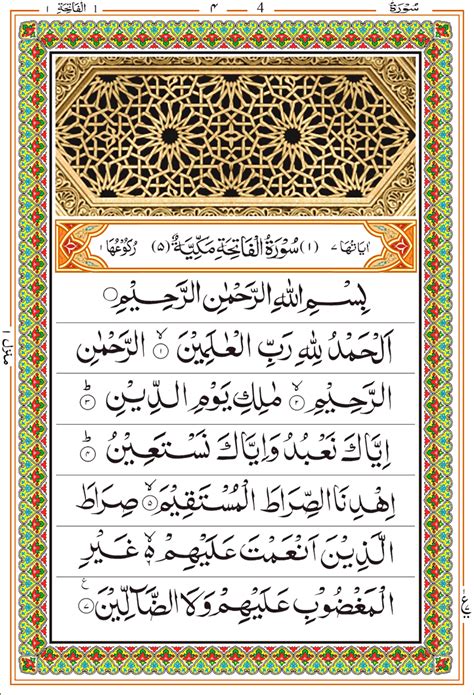 سُوْرَةُ 4 ۴ اَلْفَاتِحَةِ ١
اٰيَاتُهَا ٧ (١) سُوْرَةُ الْفَاتِحَةِ مَكِّيَّةٌ (٥) رُكُوْعُهَا ١
بِسْمِ اللهِ الرَّحْمٰنِ الرَّحِيْمِ
اَلْحَمْدُ لِلّٰهِ رَبِّ الْعٰلَمِيْنَ ۙ﴿١﴾ الرَّحْمٰنِ
الرَّحِيْمِ ۙ﴿٢﴾ مٰلِكِ يَوْمِ الدِّيْنِ ؕ﴿٣﴾
اِيَّاكَ نَعْبُدُ وَاِيَّاكَ نَسْتَعِيْنُ ؕ﴿۴﴾
اِهْدِنَا الصِّرَاطَ الْمُسْتَقِيْمَ ۙ﴿٥﴾ صِرَاطَ
الَّذِيْنَ اَنْعَمْتَ عَلَيْهِمْ ۙ۬ غَيْرِ
الْمَغْضُوْبِ عَلَيْهِمْ وَلَا الضَّآلِّيْنَ ﴿٧﴾ ع
منزل ١